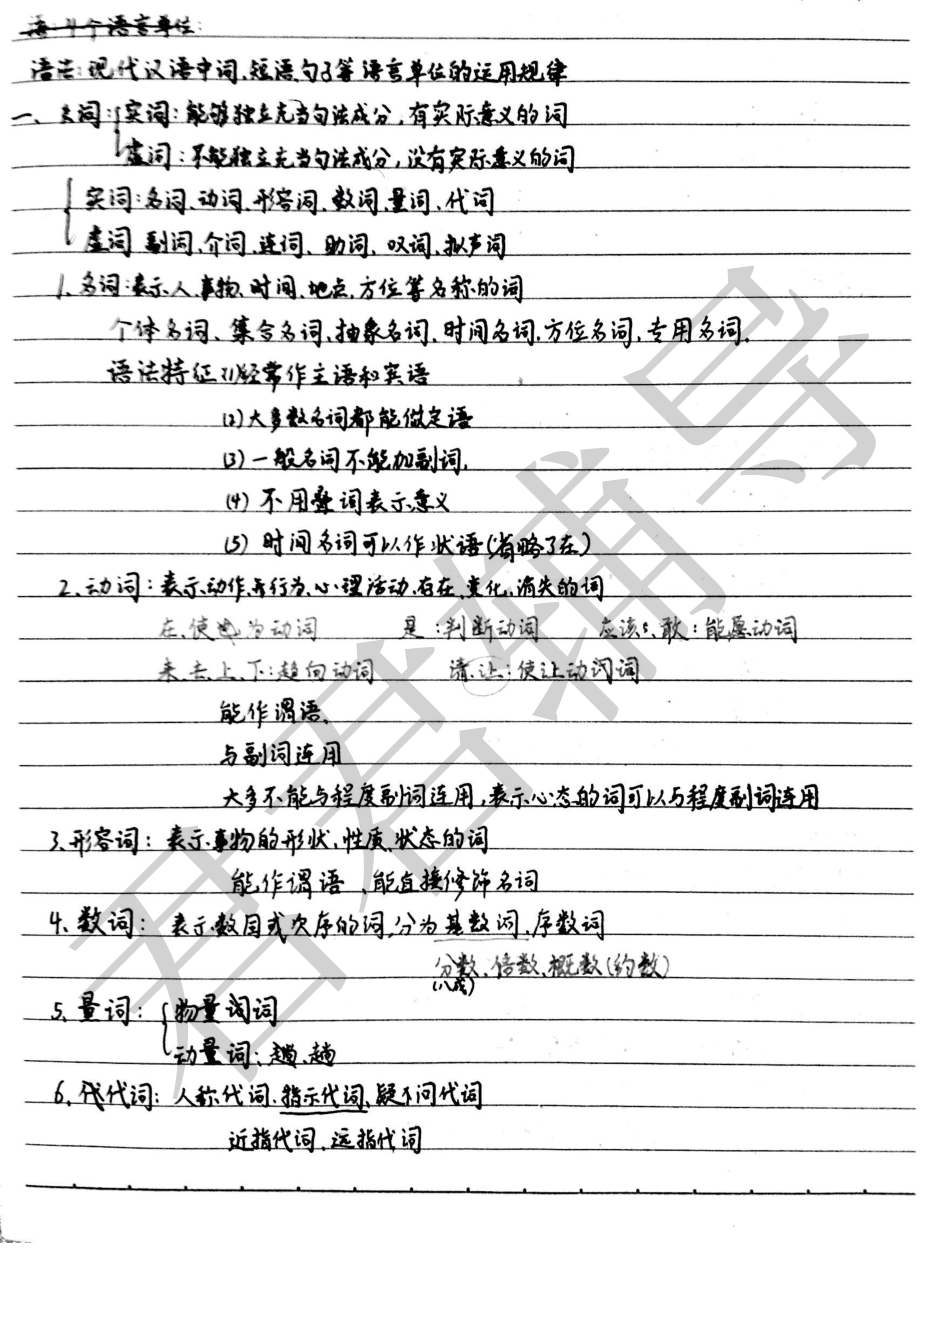 语：4个语言单位：
语法：现代汉语中词、短语、句子等语言单位的运用规律
一、实词：能够独立充当句法成分，有实际意义的词
虚词：不能独立充当句法成分，没有实际意义的词
实词：名词、动词、形容词、数词、量词、代词
虚词 副词、介词、连词、助词、叹词、拟声词
1、名词：表示人、事物、时间、地点、方位等名称的词
个体名词、集合名词、抽象名词、时间名词、方位名词、专用名词。
语法特征(1)经常作主语和宾语
(2)大多数名词都能做定语
(3)一般名词不能加副词，
(4)不用叠词表示意义
(5)时间名词可以作状语(省略了在)
2、动词：表示动作、行为、心理活动、存在、变化、消失的词
在、使、为动词 是：判断动词 应该、敢：能愿动词
来、去、上、下：趋向动词 请、让：使让动词
能作谓语、
与副词连用
大多不能与程度副词连用，表示心态的词可以与程度副词连用
3、形容词：表示事物的形状，性质、状态的词
能作谓语、能直接修饰名词
4、数词：表示数目或次序的词，分为基数词、序数词
分数、倍数、概数(约数)
(八成)
5、量词：物量词
动量词：趟、趟
6、代词：人称代词、指示代词、疑问代词
近指代词、远指代词
君君辅导